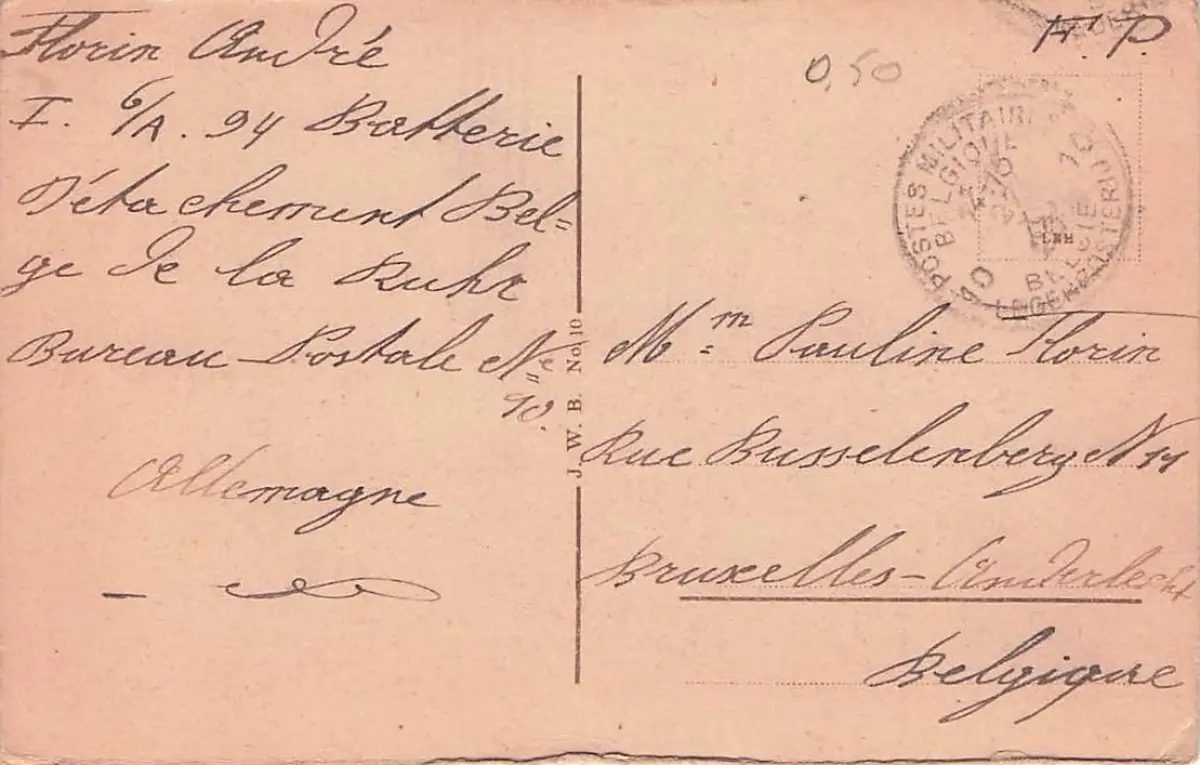 Florin André
I. 6/A. 94 Batterie
Détachement Bel=
ge de la Ruhr
Bureau Postale No
10.
Allemagne
J. W. B. No. 10
F. P.
0,50
POSTES MILITAIRES
BELGIQUE
10
BELGIE
LEGERPOSTERIJ
10
Mm = Pauline Florin
Rue Busselenberg N 11
Bruxelles - Anderlecht
Belgique